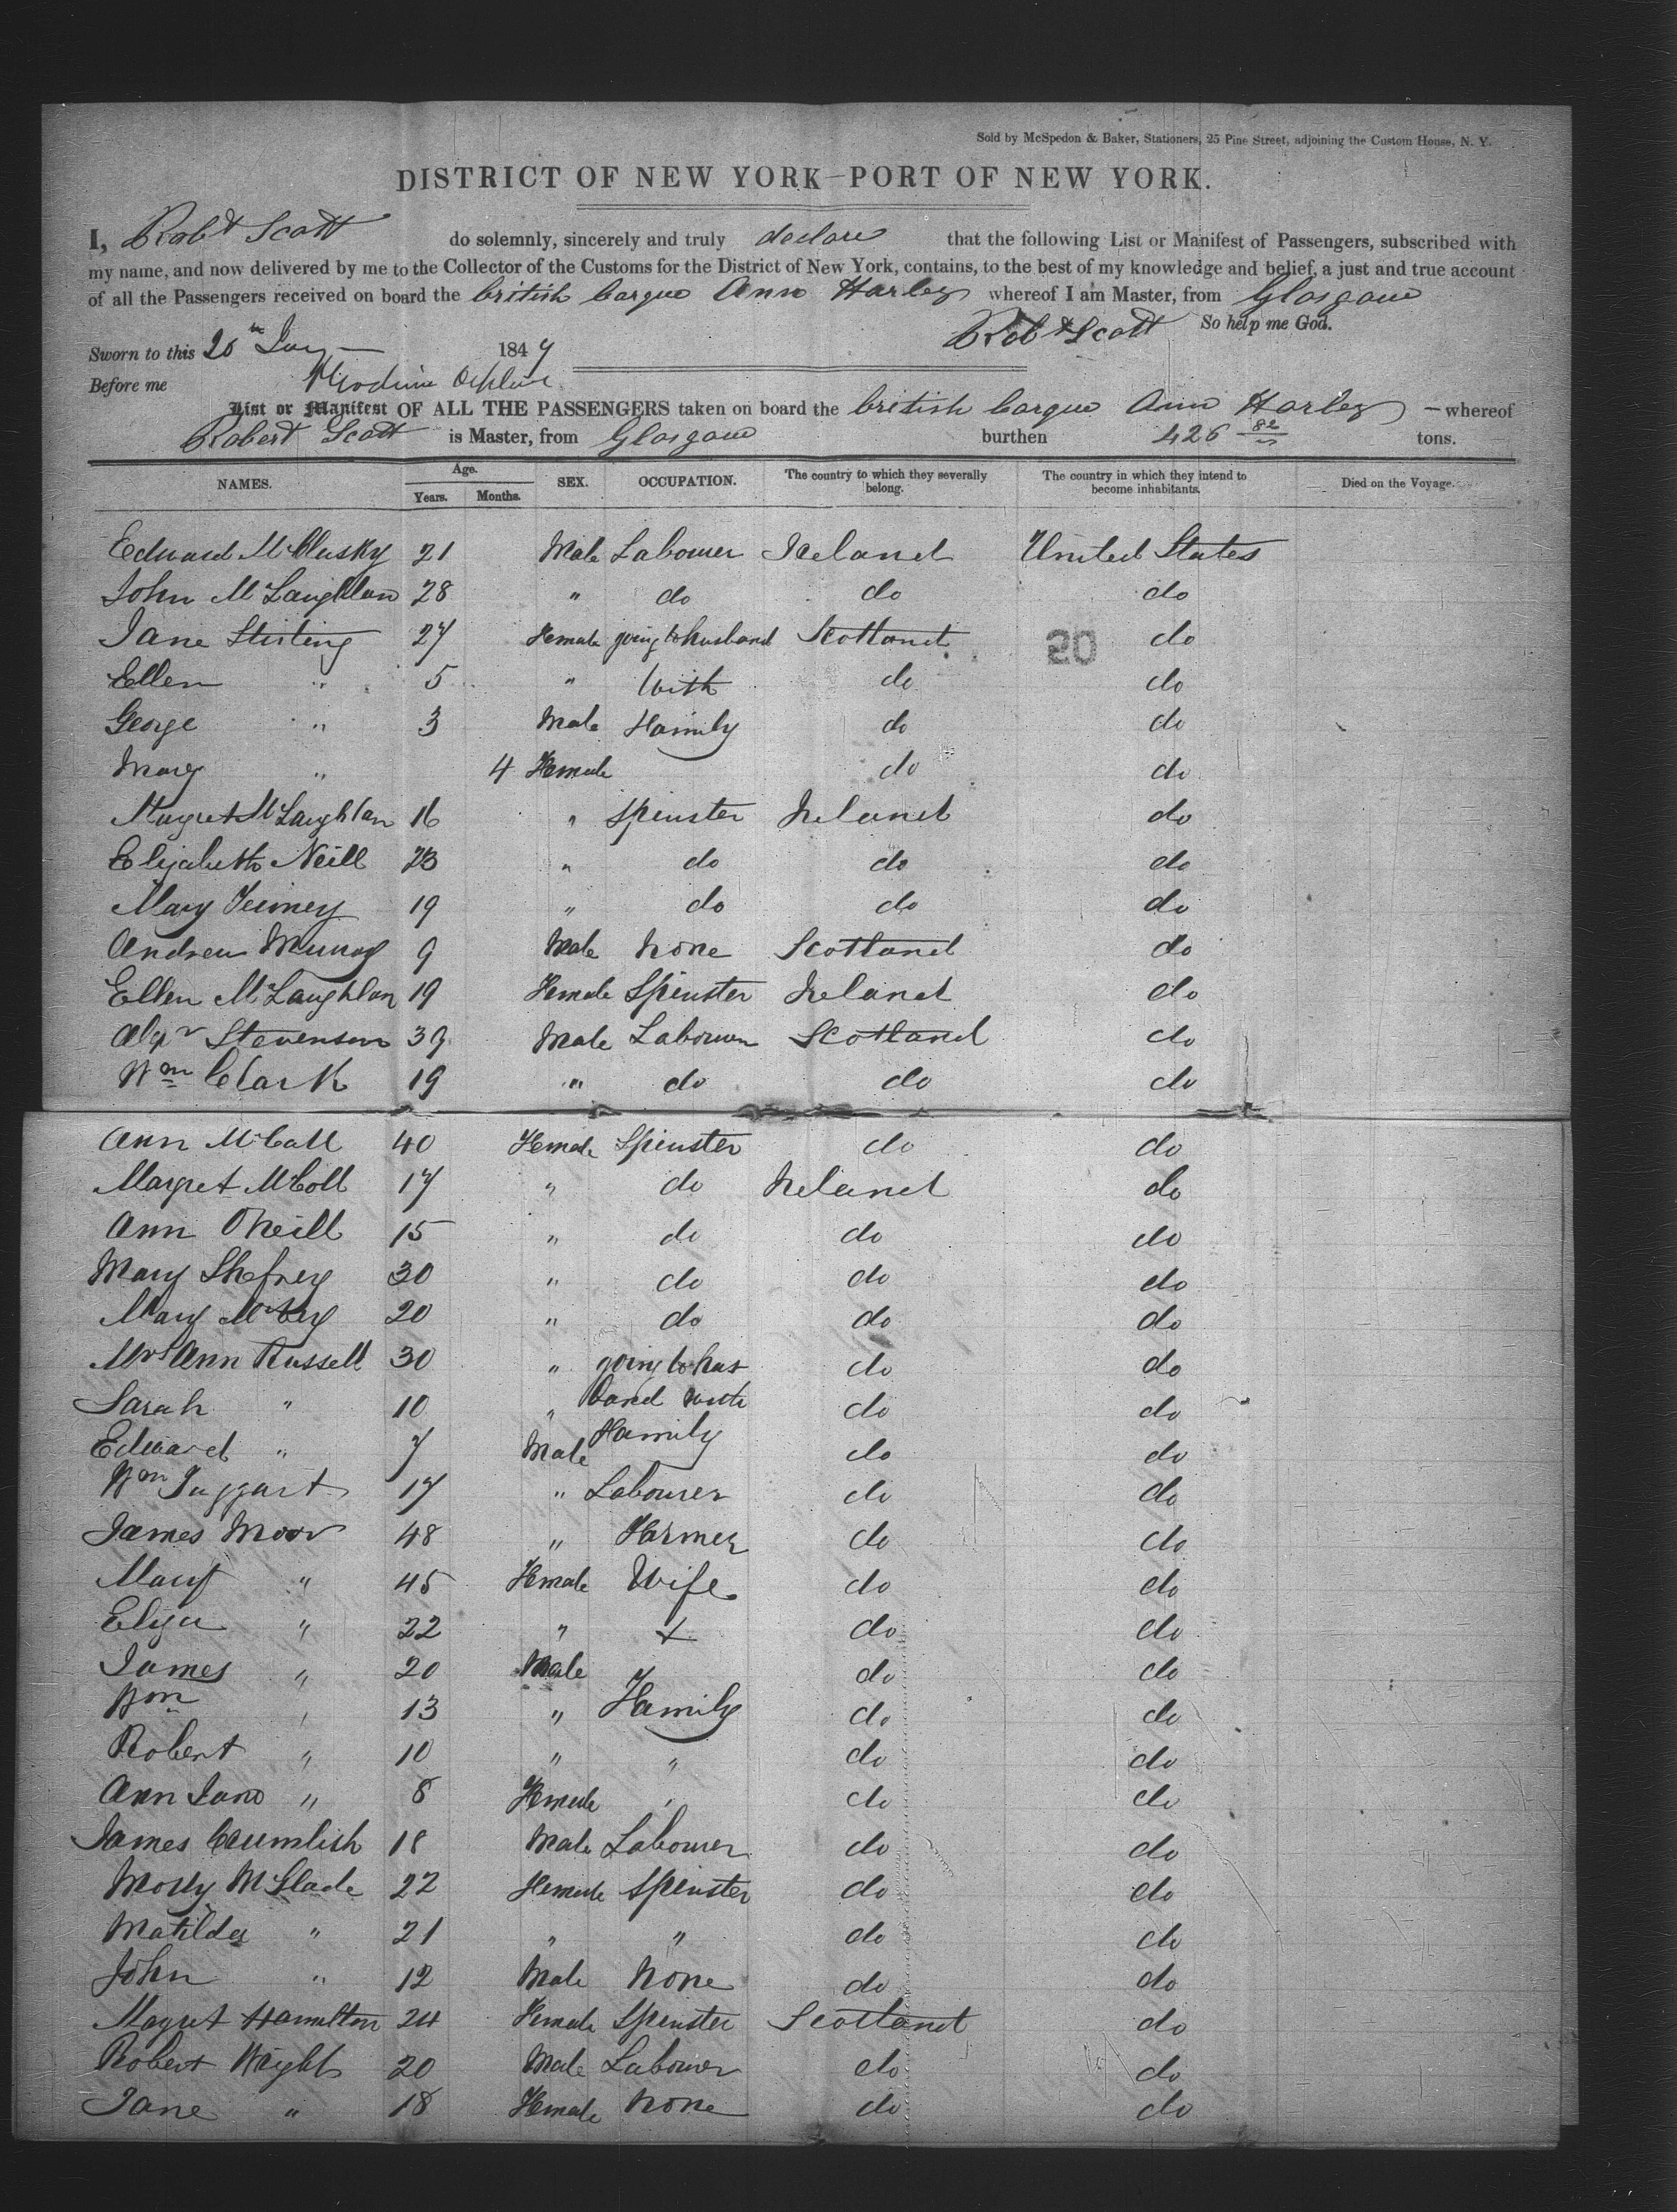 Sold by McSpedon & Baker, Stationers, 25 Pine Street, adjoining the Custom House, N. Y.
DISTRICT OF NEW YORK—PORT OF NEW YORK.
I, Robt Scott do solemnly, sincerely and truly declare that the following List or Manifest of Passengers, subscribed with
my name, and now delivered by me to the Collector of the Customs for the District of New York, contains, to the best of my knowledge and belief, a just and true account
of all the Passengers received on board the british barque Ann Harley whereof I am Master, from Glasgow
Robt Scott So help me God.
Sworn to this 1847
Before me
List or Manifest OF ALL THE PASSENGERS taken on board the british barque Ann Harley — whereof
Robert Scott is Master, from Glasgow burthen 426 tons.
NAMES. Age. Years. Months. SEX. OCCUPATION. The country to which they severally belong. The country in which they intend to become inhabitants. Died on the Voyage.
Edward McClusky 21 Male Labourer Ireland United States
John McLaughlan 28 " do do do
Jane Stirling 27 Female going to husband Scotland 20 do
Ellen " 5 " With do do
George " 3 Male Family do do
Mary " 4 Female do do
Magret McLaughlan 16 " Spinster Ireland do
Elizabeth Neill 23 " do do do
Mary 19 " do do do
Andrew Murray 9 Male None Scotland do
Ellen McLaughlan 19 Female Spinster Ireland do
Alexr Stevenson 39 Male Labourer Scotland do
Wm Clark 19 " do do do
Ann McCall 40 Female Spinster do do
Margret McColl 17 " do Ireland do
Ann ONeill 15 " do do do
Mary Shefrey 30 " do do do
Mary 20 " do do do
Mrs Ann Russell 30 " going to hus do do
Sarah " 10 " band with do do
Edward " 7 Male Family do do
Wm Taggart 17 " Labourer do do
James Moor 48 " Farmer do do
Mary " 45 Female Wife do do
Eliza " 22 " do do
James " 20 Male do do
Wm " 13 " Family do do
Robert " 10 " " do do
Ann Jane " 8 Female " do do
James Crumlish 18 Male Labourer do do
Molly McSlade 22 Female Spinster do do
Matilda " 21 " " do do
John " 12 Male None do do
Magret Hamilton 24 Female Spinster Scotland do
Robert Wright 20 Male Labourer do do
Jane " 18 Female None do do